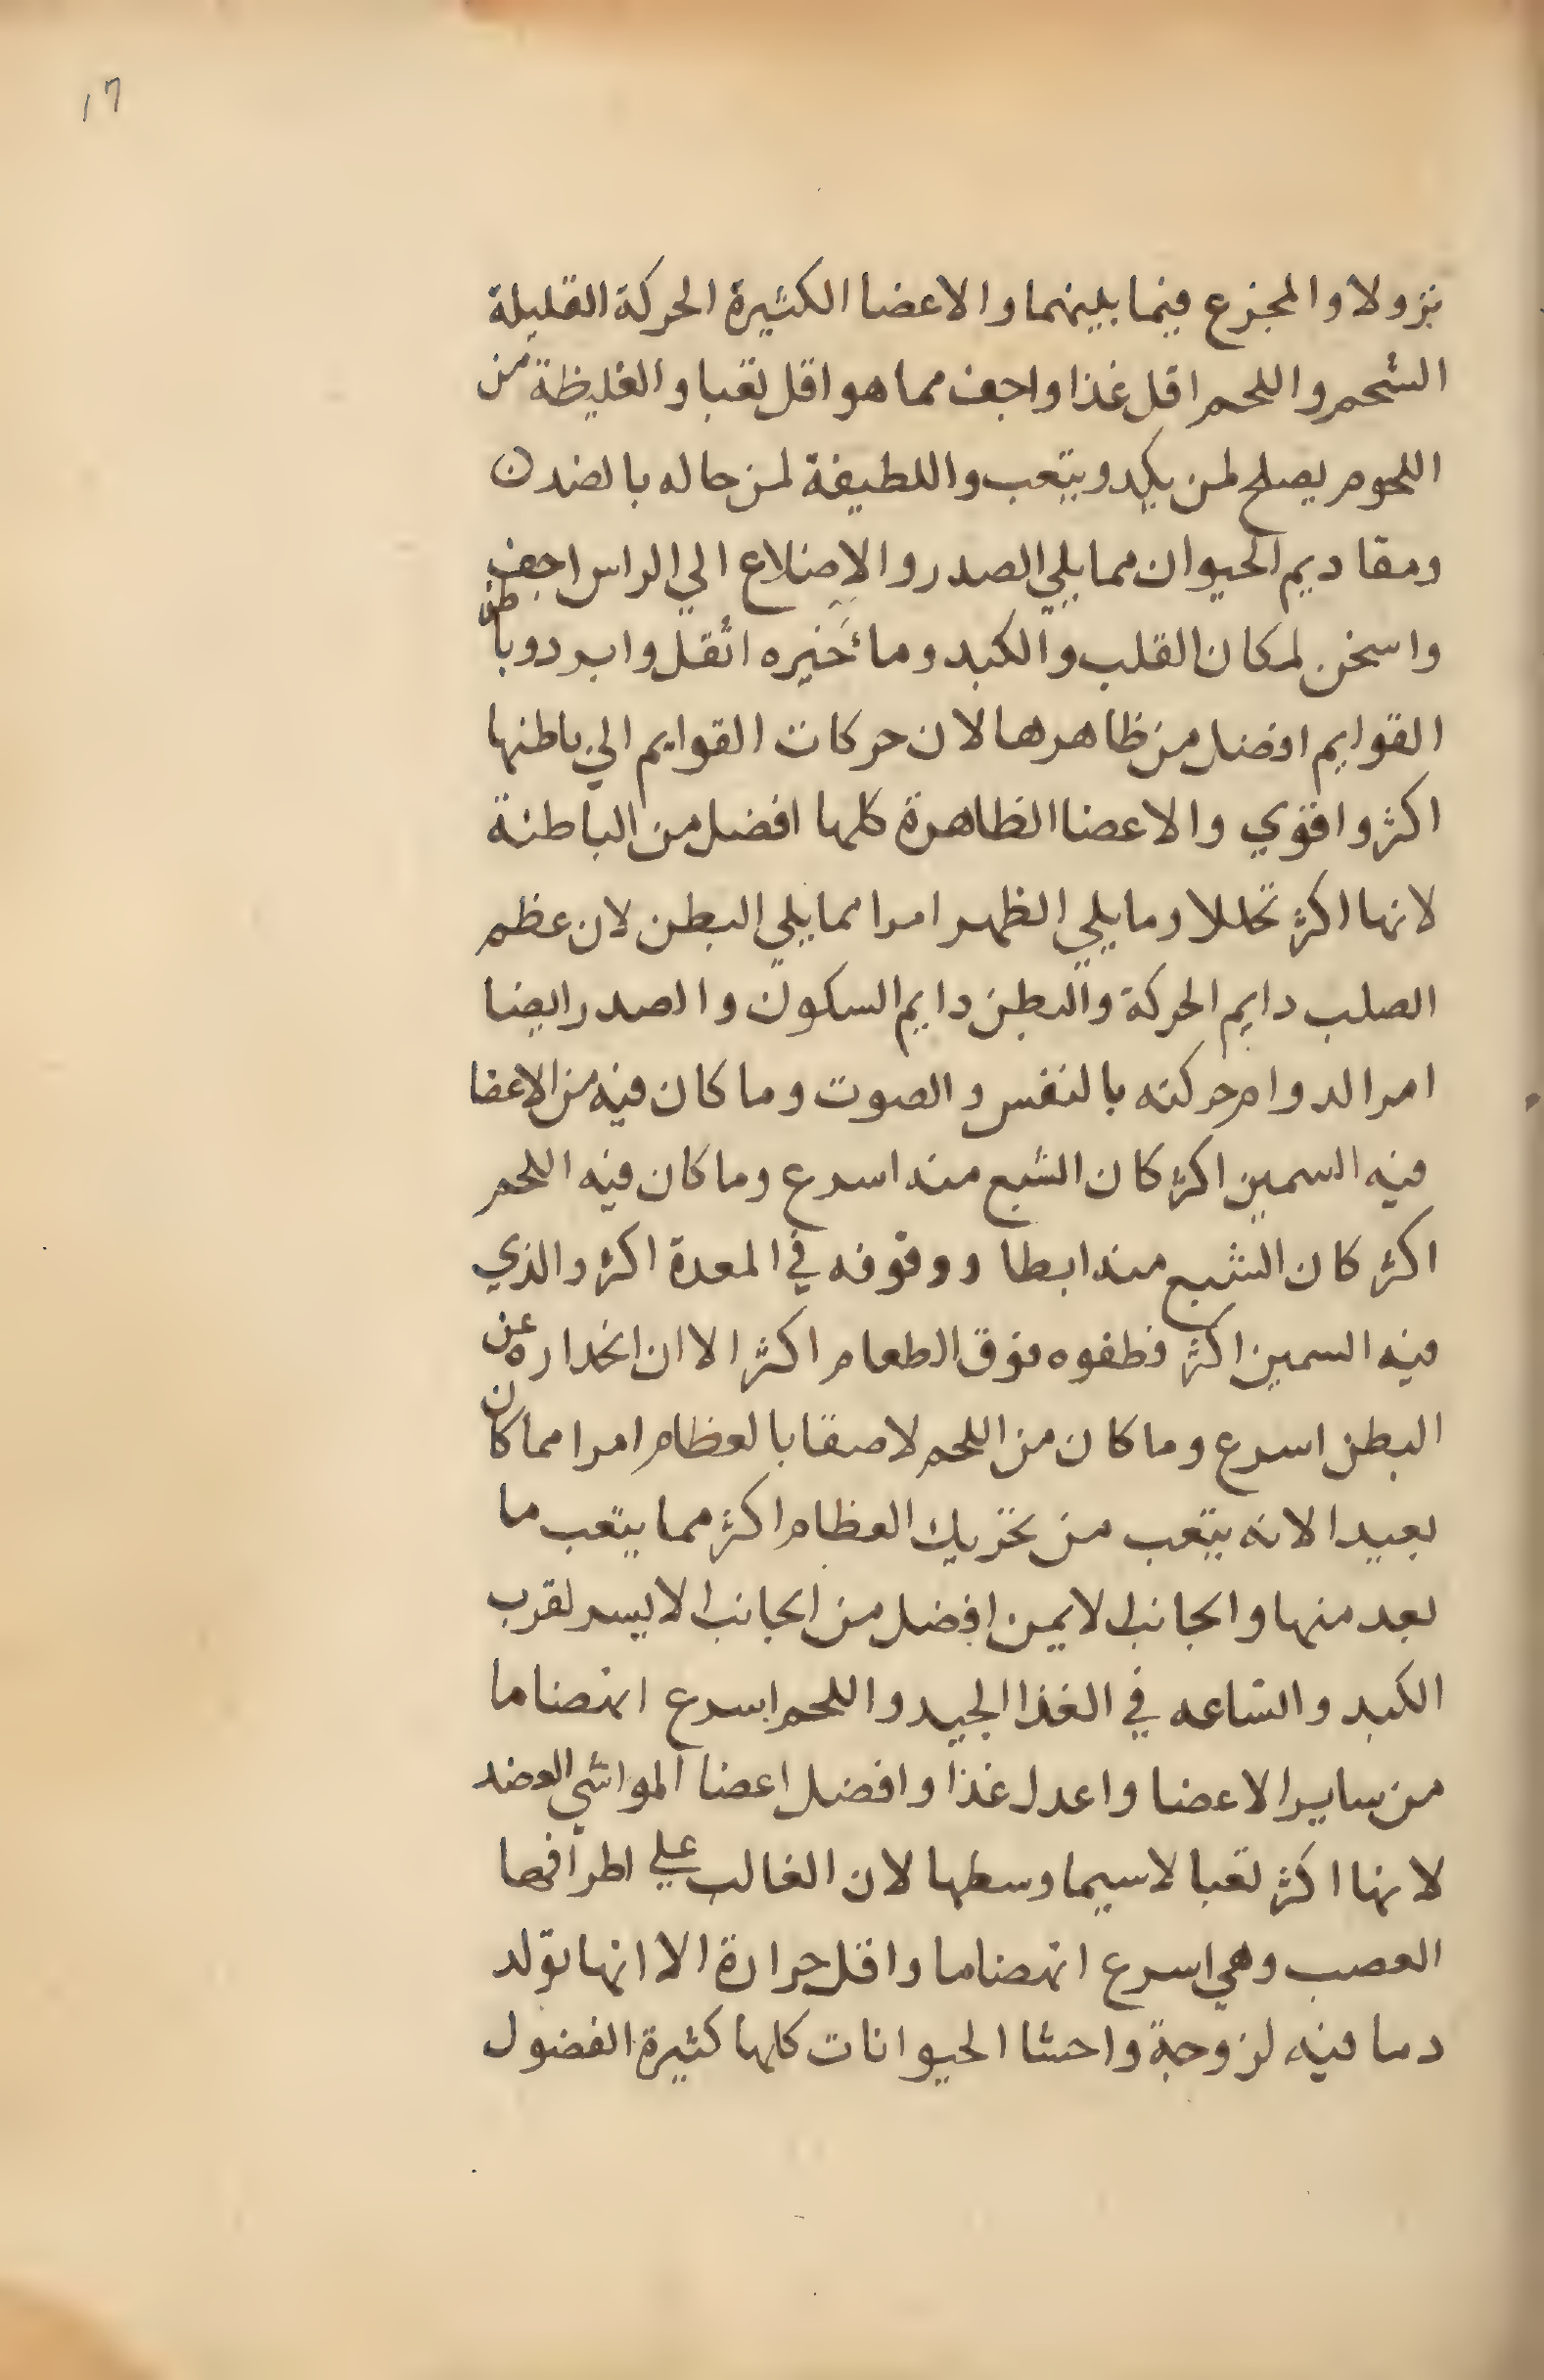 ١٦
نزولا والمجزع فيما بينهما والاعضا الكثيرة الحركة القليلة
الشحم واللحم اقل غذا واجف مما هو اقل تعبا والغليظة من
اللحوم يصلح لمن يكد ويتعب واللطيفة لمن حاله بالضد ن
ومقاديم الحيوان مما يلي الصدر والاضلاع الي الراس اجف
واسخن لمكان القلب والكبد ومأخيره اثقل وابرد وباطن
القوايم افضل من ظاهرها لان حركات القوايم الي باطنها
اكثر واقوي والاعضا الظاهرة كلها افضل من الباطنة
لانها اكثر تحللا وما يلي الظهر امرا مما يلي البطن لان عظم
الصلب دايم الحركة والبطن دايم السكون والصدر ايضا
امرا لدوام حركته بالنفس والصوت وما كان فيه من الاعضا
فيه السمين اكثر كان الشبع منه اسرع وما كان فيه اللحم
اكثر كان الشبع منه ابطا ووقوفه في المعدة اكثر والذي
فيه السمين اكثر فطفوه فوق الطعام اكثر الا ان انحداره عن
البطن اسرع وما كان من اللحم لاصقا بالعظام امرا مما كان
بعيدا لانه يتعب من تحريك العظام اكثر مما يتعب ما
بعد منها والجانب الايمن افضل من الجانب الايسر لقرب
الكبد واتساعه في الغذا الجيد واللحم اسرع انهضاما
من ساير الاعضا واعدل غذا وافضل اعضا المواشي العضد
لانها اكثر تعبا لاسيما وسطها لان الغالب علي اطرافها
العصب وهي اسرع انهضاما واقل حرارة الا انها تولد
دما فيه لزوجة واحشا الحيوانات كلها كثيرة الفضول